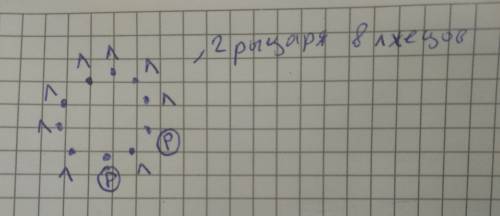 Л Л Л , 2 рыцаря 8 лжецов
Л Л
Л
Р
Л Р Л